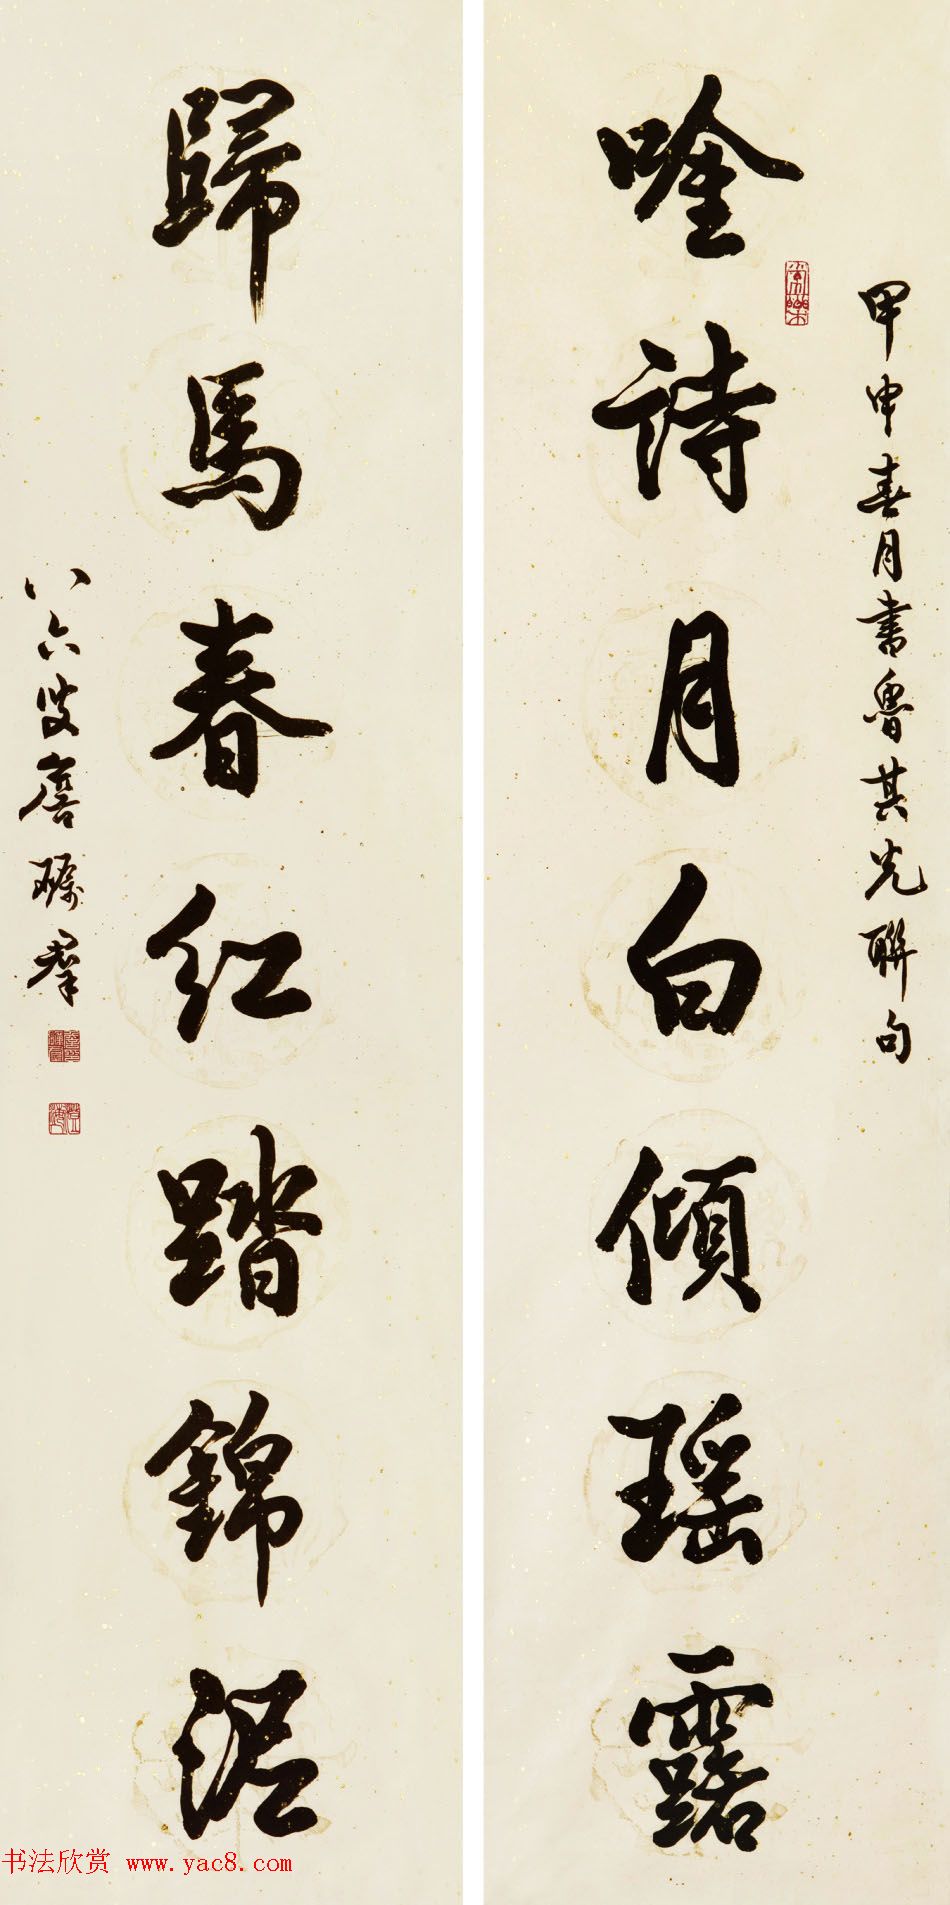 甲申喜月書魯其光聯句
唫詩月白傾瑤露
常樂
歸馬春红踏錦泥
八六叟詹礪羣
书法欣赏 www.yac8.com